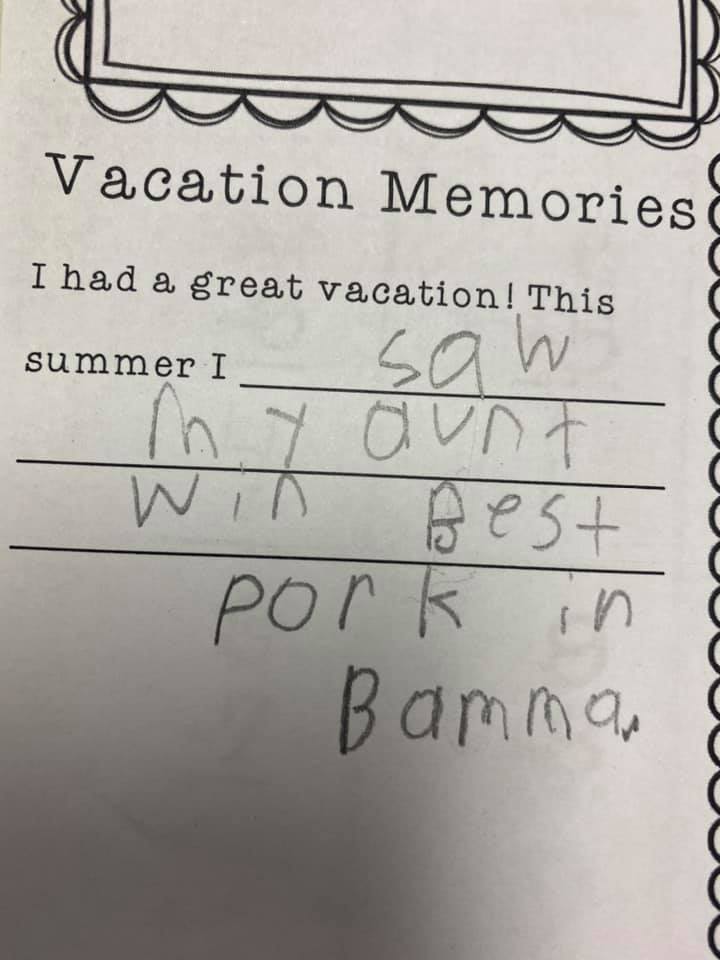 Vacation Memories
I had a great vacation! This
summer I saw
my aunt
win Best
pork in
Bamma.